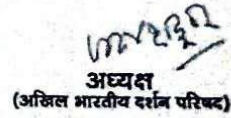 अध्यक्ष
(अखिल भारतीय दर्शन परिषद)